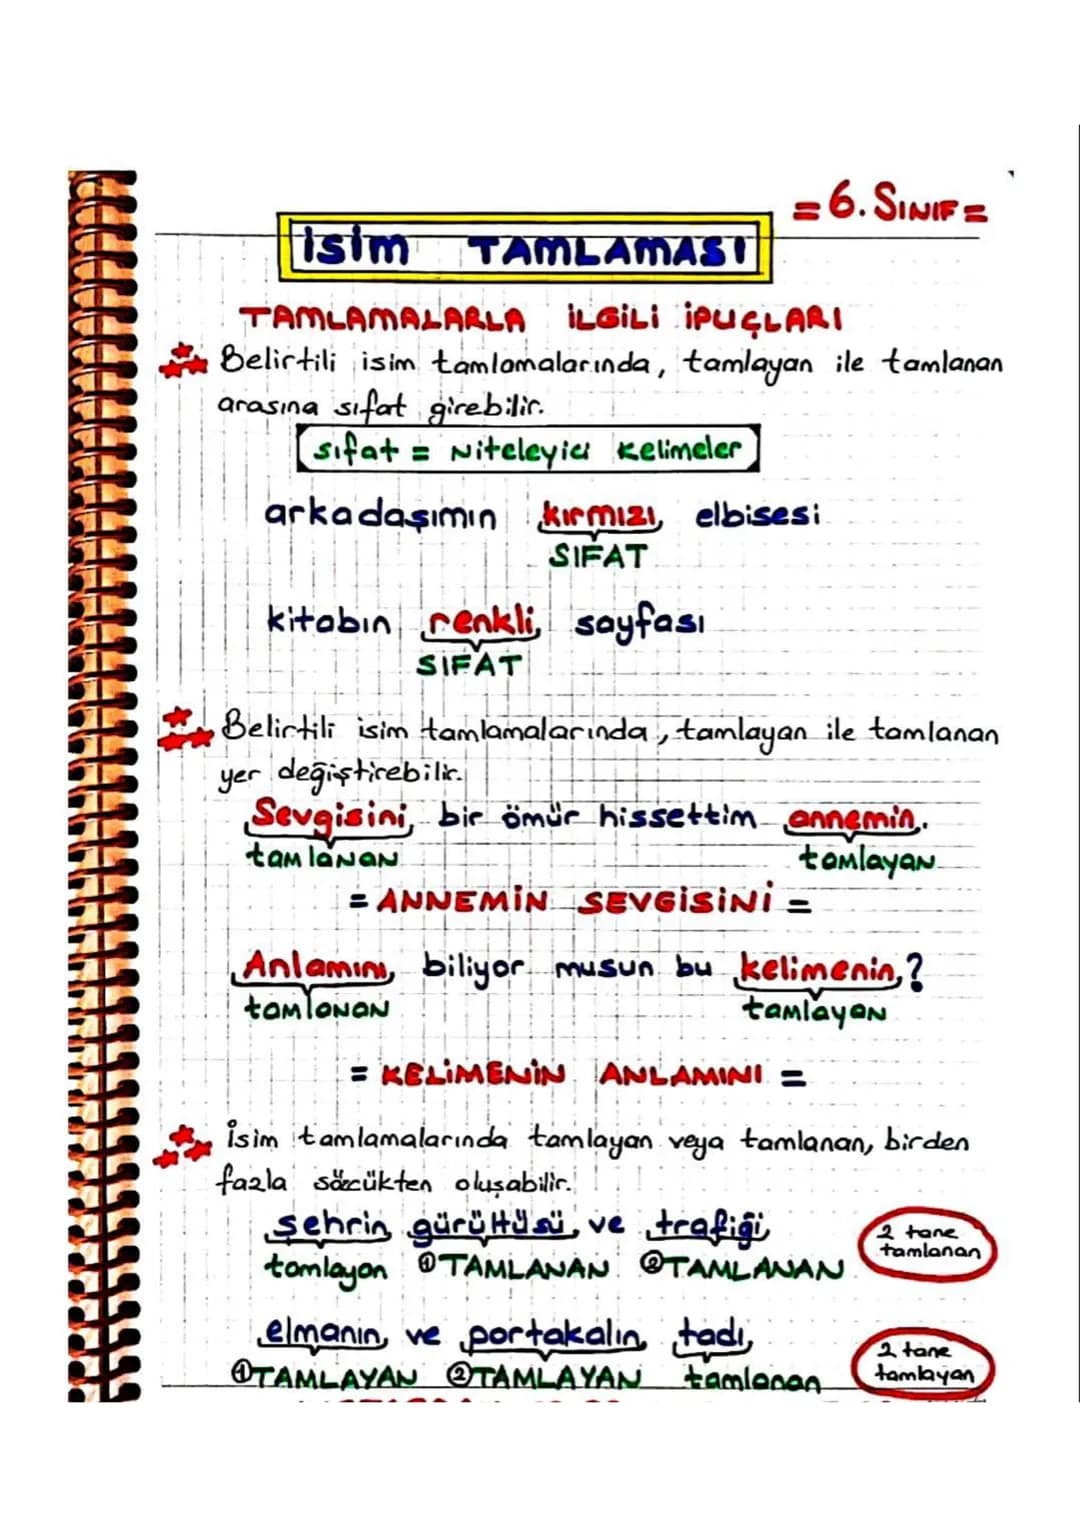 =6. SINIF=
isim TAMLAMASI
TAMLAMALARLA İLGİLİ İPUÇLARI
Belirtili isim tamlamalarında, tamlayan ile tamlanan
arasına sıfat girebilir.
sıfat = Niteleyici Kelimeler
arkadaşımın kırmızı elbisesi
SIFAT
kitabın renkli sayfası
SIFAT
Belirtili isim tamlamalarında, tamlayan ile tamlanan
yer değiştirebilir.
Sevgisini bir ömür hissettim annemin.
tamlanan tamlayan
= ANNEMİN SEVGİSİNİ =
Anlamını biliyor musun bu kelimenin?
tamlanan tamlayan
= KELİMENİN ANLAMINI =
İsim tamlamalarında tamlayan veya tamlanan, birden
fazla sözcükten oluşabilir.
şehrin gürültüsü ve trafiği
tamlayan ① TAMLANAN ② TAMLANAN
2 tane
tamlanan
elmanın ve portakalın tadı
① TAMLAYAN ② TAMLAYAN tamlanan
2 tane
tamlayan